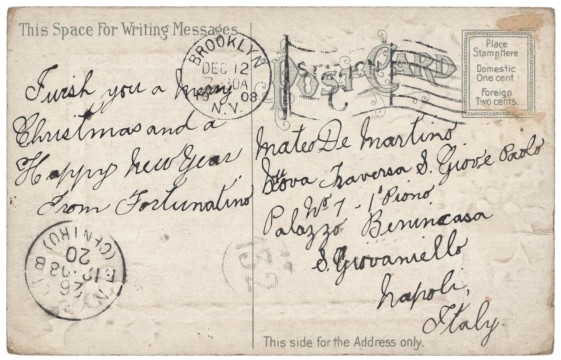 This Space For Writing Messages
POST CARD
BROOKLYN
DEC 12
1908
N.Y.
Place
Stamp Here
Domestic
One cent.
Foreign
Two cents.
I wish you a merry
Christmas and a
Happy New Year
From Fortunatino
Mateo De Martino
Nova Traversa S. Giov e Paolo
No 7 - 1o Piono
Palazzo Benincasa
S. Giovaniello
Napoli,
Italy.
(CENTRO)
20
This side for the Address only.